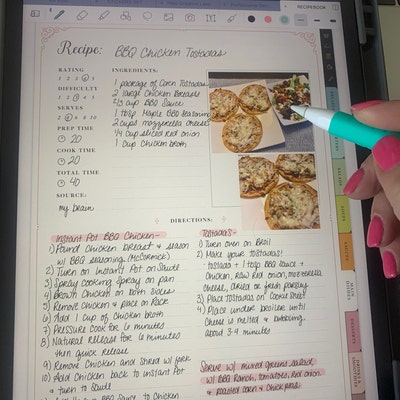 RECIPEBOOK
Recipe: BBQ Chicken Tostadas
RATING
1 2 3 4 5
DIFFICULTY
1 2 3 4 5
SERVES
2 4 6 8 10
PREP TIME
20
COOK TIME
20
TOTAL TIME
40
SOURCE:
my brain
INGREDIENTS:
1 package of Corn Tostadas
2 large Chicken Breasts
2/3 cup BBQ Sauce
1 tbsp Maple BBQ Seasoning
2 cups mozzerella cheese
1/4 cup sliced red onion
1 cup Chicken broth
DIRECTIONS:
Instant Pot BBQ Chicken-
1) Pound Chicken breast & season
w/ BBQ seasoning (McCormick)
2) Turn on Instant Pot on Sauté
3) Spray Cooking Spray on pan
4) Brown Chicken on both sides
5) Remove Chicken & place on Rack
6) Add 1 Cup of Chicken broth
7) Pressure Cook for 6 minutes
8) Natural release for 6 minutes
then quick release
9) Remove Chicken and Shred w/ fork
10) Add Chicken back to Instant Pot
& turn to Sauté
BBQ Sauce to Chicken
Tostadas-
1) Turn oven on Broil
2) Make your tostadas!
tostada + 1 tbsp BBQ Sauce +
Chicken, Raw Red onion, mozzerella
cheese, dried or fresh parsley
3) Place tostadas on Cookie Sheet
4) Place under broiler until
Cheese is melted & bubbling.
about 3-4 minutes
Serve w/ mixed greens salad
w/ BBQ Ranch, tomatoes, Red onion
& roasted corn & Chick peas
SALADS
SOUPS
MAIN DISHES
DESSERTS
DRINKS & SMOOTHIES